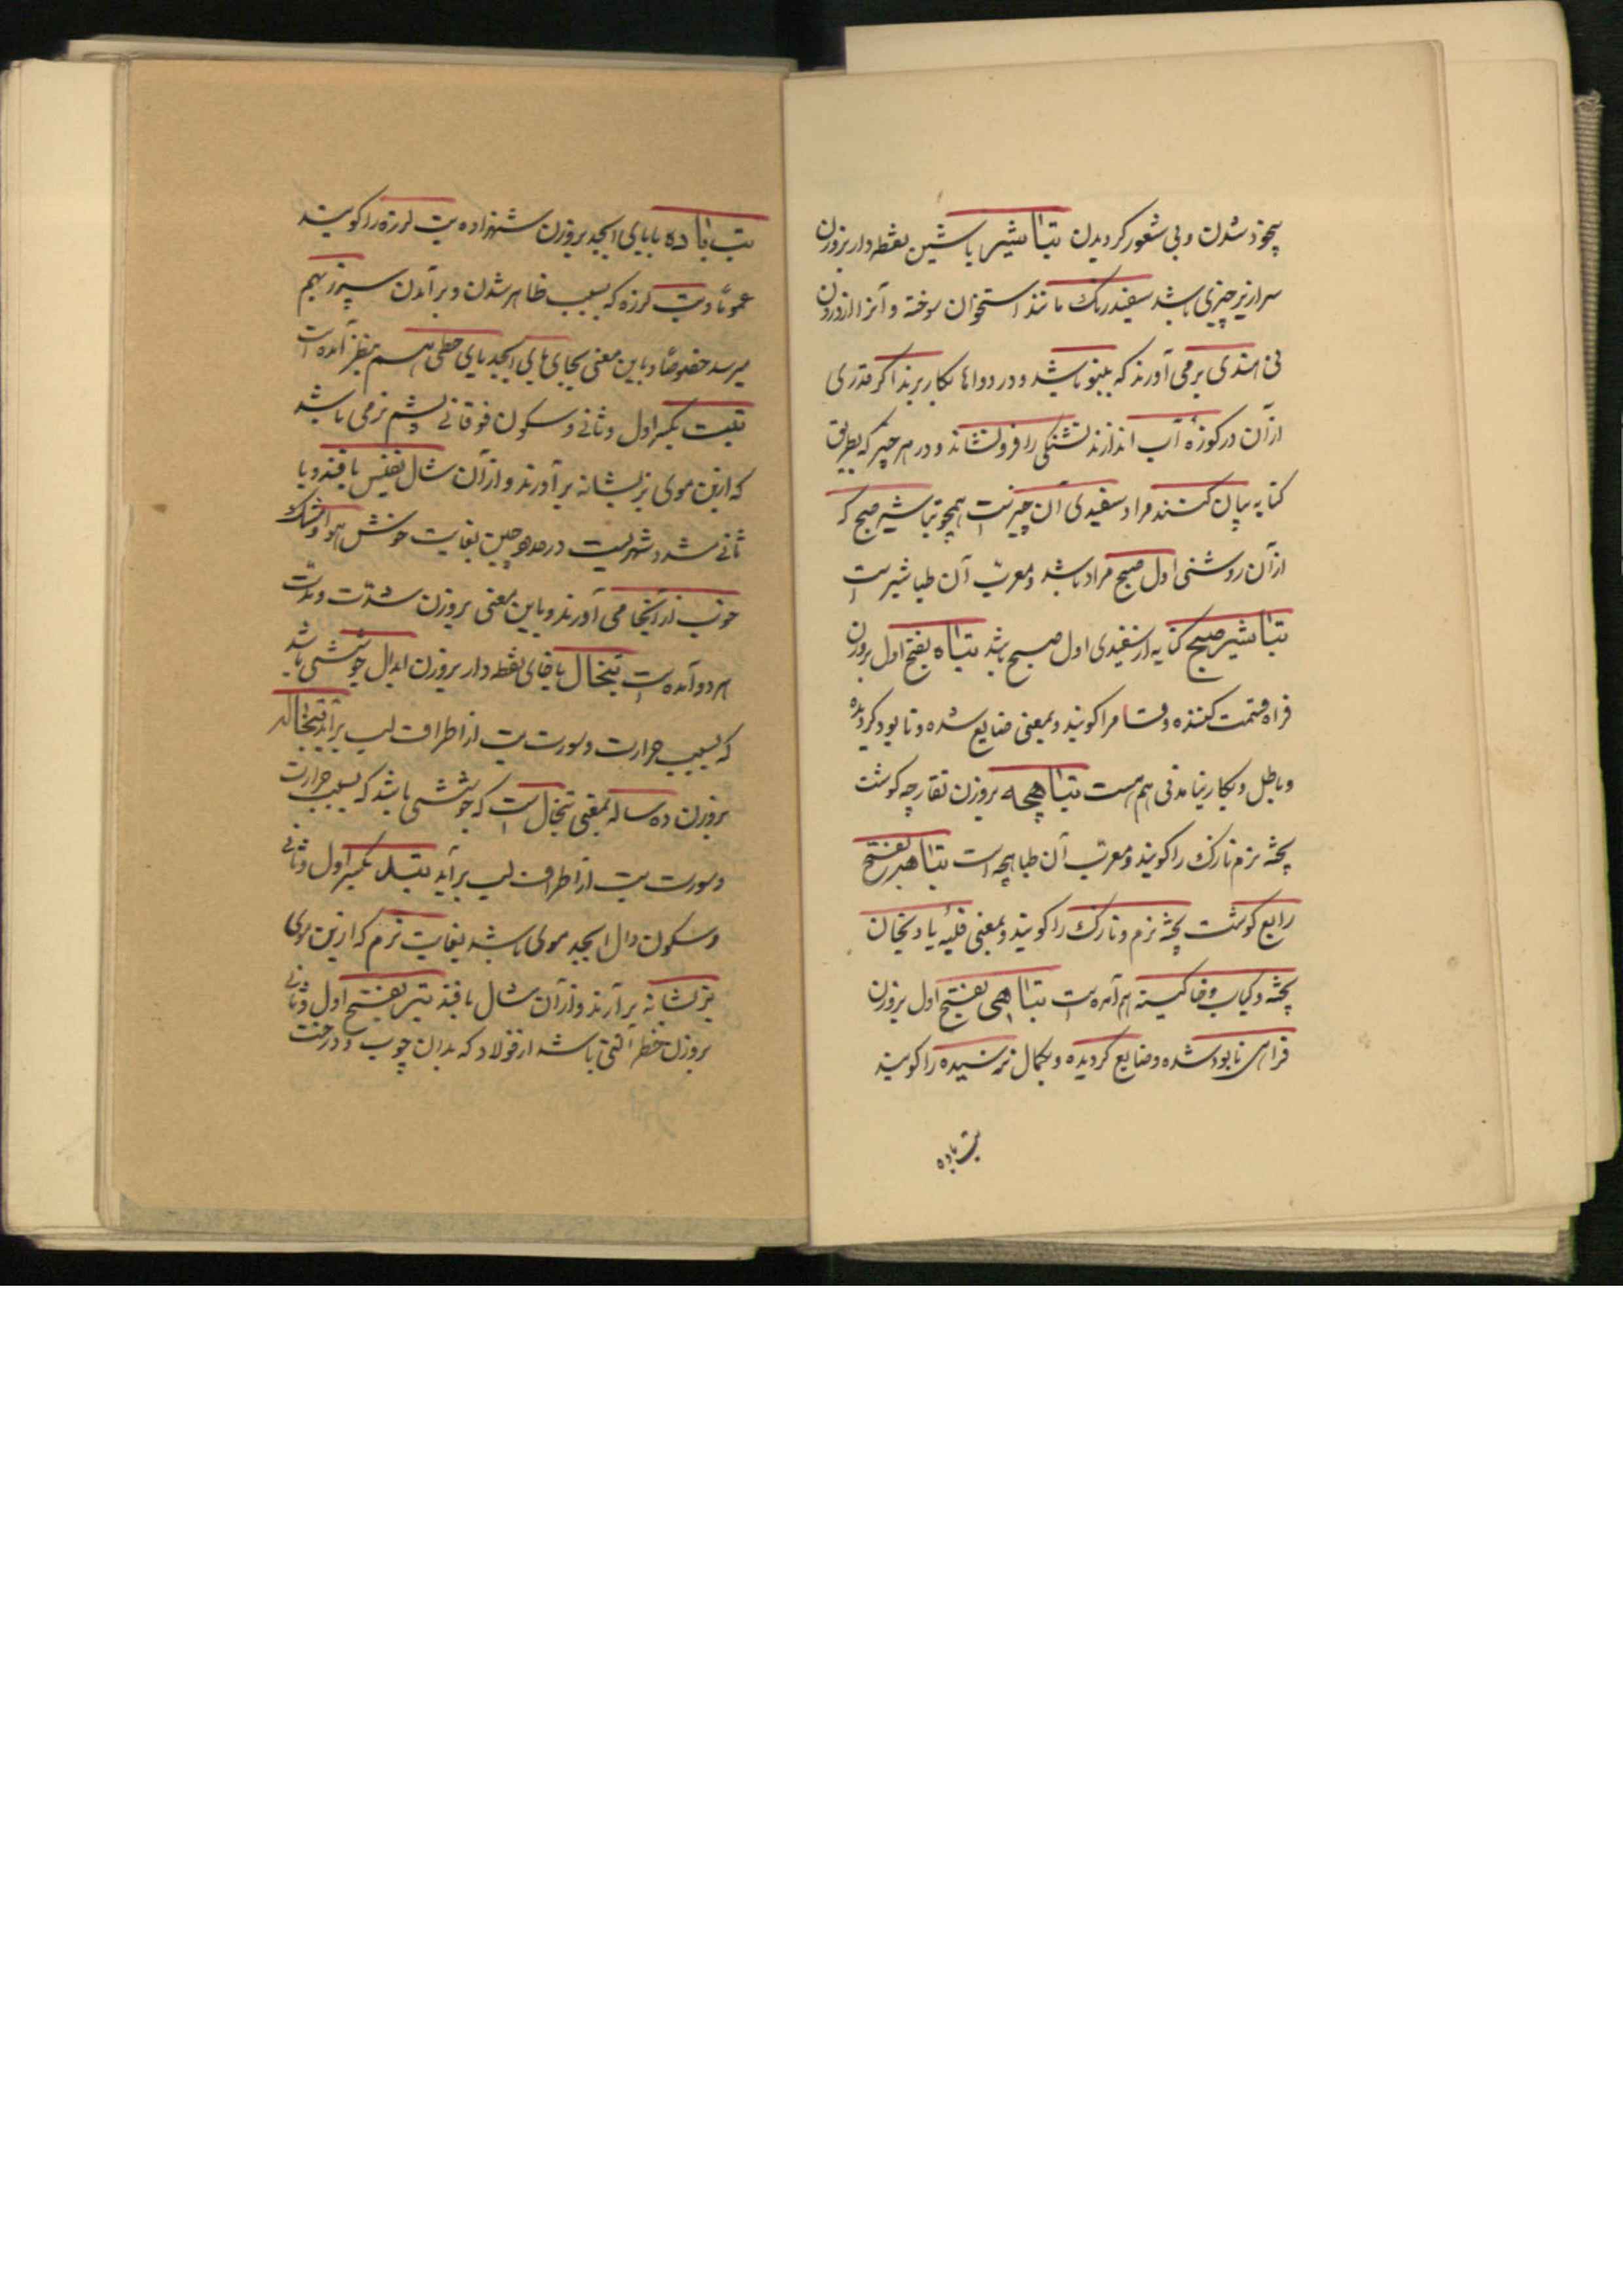 بیخود شدن و بی شعور کردیدن تباشیر با شین نقطه دار بروزن
سرازیر چیزی باشد سفید رنک مانند استخوان سوخته و آنرا از درون
نی هندی برمی آورند که بنبو باشد و در دواها بکار برند اکر قدری
از آن در کوزهٔ آب اندازند تشنکی را فرونشاند و در هر چیز که بطریق
کنایه بیان کنند مراد سفیدی آن چیزست همچو تباشیر صبح که
از آن روشنی اول صبح مراد باشد و معرب آن طباشیرست
تباشیر صبح کنایه از سفیدی اول صبح باشد تباه بفتح اول بروزن
فراه قسمت کننده و قسام را کویند و بمعنی ضایع شده و نابود کردیده
و باطل و بکار نیامدنی هم هست تباهچه بروزن نقارچه کوشت
پخته نرم نازک را کویند و معرب آن طباهچه است تباهه بفتح
رابع کوشت پخته نرم و نازک را کویند و بمعنی قلیهٔ بادنجان
پخته و کباب و خاکینه هم آمده است تباهی بفتح اول بروزن
فراهی نابود شده و ضایع کردیده و بکمال نرسیده را کویند
تب باده
تب باده با بای ابجد بروزن شهزاده تب لرزه را کویند
عموماً و تب لرزه که بسبب ظاهر شدن و برآمدن سپرز بهم
میرسد خصوصاً و باین معنی بجای بای ابجد یای حطی هم بنظر آمده است
تبت بکسر اول و ثانی و سکون فوقانی پشم نرمی باشد
که از بن موی بز بشانه برآورند و از آن شال نفیس بافند و با
ثانی مشدد شهریست در حد و چین بغایت خوش هوا و مشک
خوب از آنجا می آورند و باین معنی بروزن شدت و مدت
هر دو آمده است تبخال با خای نقطه دار بروزن ابدال جوششی باشد
که بسبب حرارت و سورت تب از اطراف لب برآید تبخاله
بروزن ده ساله بمعنی تبخال است که جوششی باشد که بسبب حرارت
و سورت تب از اطراف لب برآید تبد بکسر اول و ثانی
و سکون دال ابجد موی باشد بغایت نرم که از بن موی
بز بشانه برآرند و از آن شال بافند تبر بفتح اول و ثانی
بروزن خطر آلتی باشد از فولاد که بدان چوب و درخت